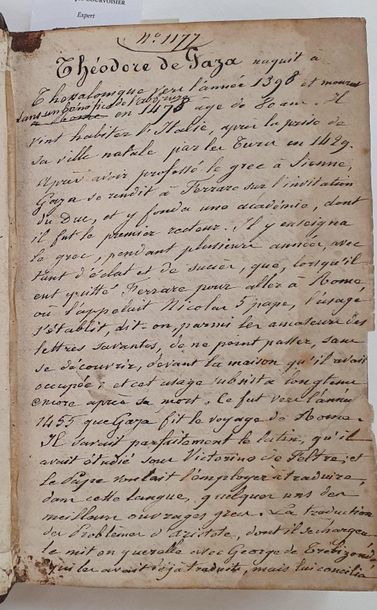 COURVOISIER
Expert
N.° 1177
Théodore de Gaza naquit à
Thessalonique vers l'année 1398 et mourut
dans un bénéfice de l'abruzze
à Rome en 1478 agé de 80 ans. Il
vint habiter l'Italie, après la prise de
sa ville natale par les Turcs en 1429.
Après avoir professé le grec à Sienne,
Gaza se rendit à Ferrare sur l'invitation
du Duc, et y fonda une académie, dont
il fut le premier recteur. Il y enseigna
le grec, pendant plusieurs années, avec
tant d'éclat et de succès, que, lorsqu'il
eut quitté Ferrare pour aller à Rome
où l'appelait Nicolas 5 pape, l'usage
s'établit, dit-on, parmi les amateurs des
lettres savantes, de ne point passer, sans
se découvrir, devant la maison qu'il avait
occupée; et cet usage subsista longtems
encore après sa mort. Ce fut vers l'année
1455 que Gaza fit le voyage de Rome.
Il savait parfaitement le latin, qu'il
avait étudié sous Victorino de Feltre; et
le Pape voulait l'employer à traduire,
dans cette langue, quelques uns des
meilleurs ouvrages grecs. La traduction
des Problèmes d'Aristote, dont il se chargea
le mit en querelle avec George de Trébizonde
qui les avait déjà traduits, mais lui concilia